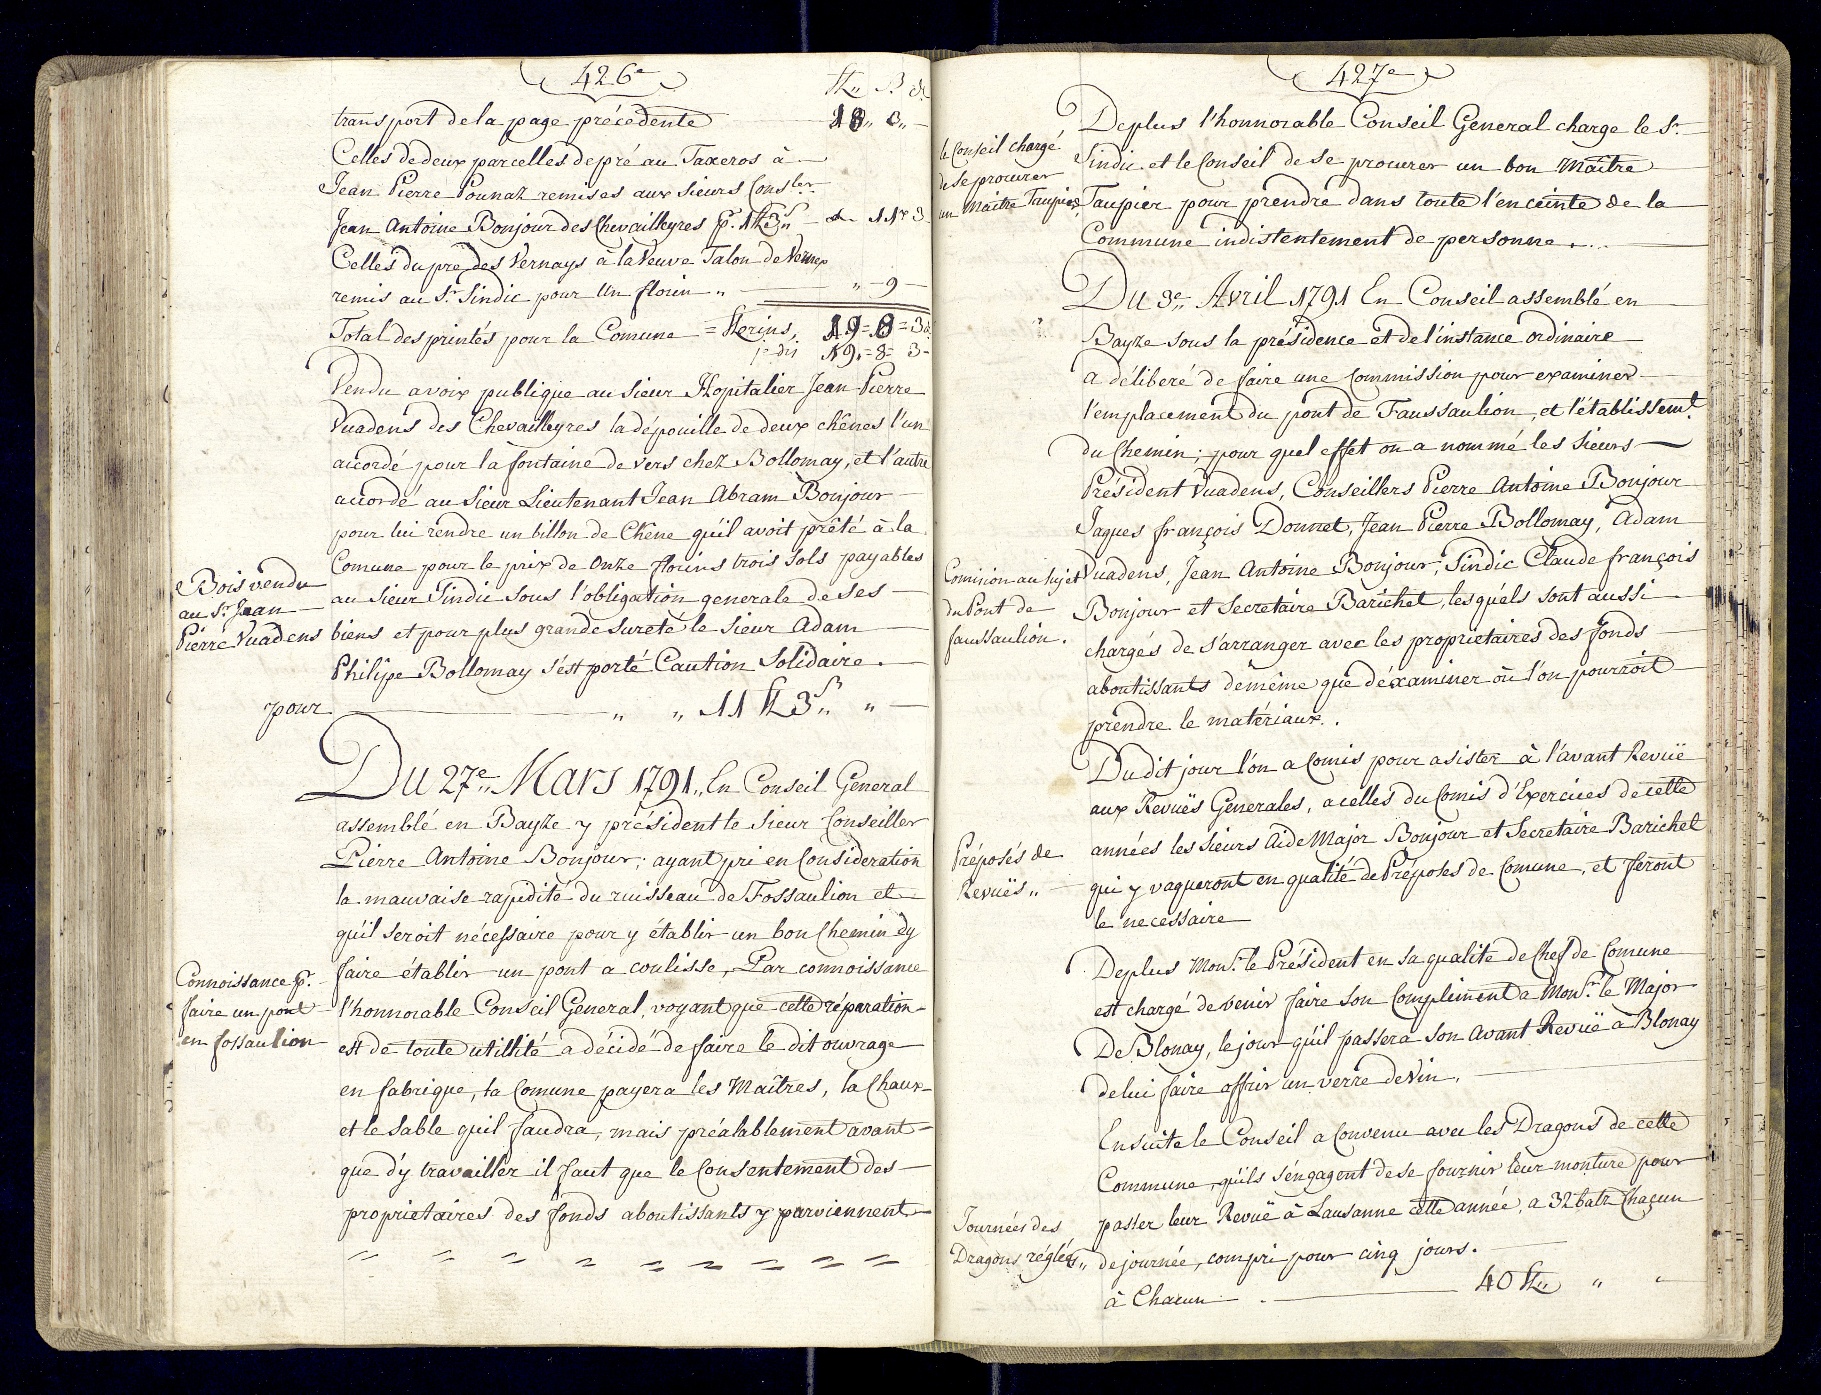 426e
fl„ ß ds
transport de la page précédente 18„ 8„ —
Celles de deux parcelles de pré au Taxeros à
Jean Pierre Pounaz remises aux Sieurs Conser
Jean Antoine Bonjour des Chevailleyres p. 1 fl 3 s — 11 3
Celles du pre des Vernays à la Veuve Talon de Vennex
remis au Sr Sindic pour Un florin „ — „ — 9 —
Total des printés pour la Comune = florins, 19 = 8 = 3 d
je dis 19 = 8 = 3 —
Vendu a voix publique au Sieur Hopitalier Jean Pierre
Vuadens des Chevailleyres la dépouille de deux chênes l'un
accordé pour la fontaine de vers chez Bollomay, et l'autre
accordé au Sieur Lieutenant Jean Abram Bonjour
pour lui rendre un billon de Chêne qu'il avoit prêté à la
Comune pour le prix de Onze florins trois Sols payables
au Sieur Sindic sous l'obligation generale de ses
biens et pour plus grande Sureté le Sieur Adam
Philipe Bollomay s'est porté Caution Solidaire.
Bois vendu
au Sr Jean
Pierre Vuadens
pour „ „ 11 fl 3 ß „ „
Du 27e„ Mars 1791„ En Conseil General
assemblé en Bayze y président le Sieur Conseiller
Pierre Antoine Bonjour; ayant pri en Consideration
la mauvaise rapidité du ruisseau de Fossaulion et
qu'il seroit nécessaire pour y établir un bon Chemin d'y
faire établir un pont a coulisse, Par connoissance
l'honnorable Conseil General, voyant que cette réparation
est de toute utillité a décidé de faire le dit ouvrage
en fabrique, la Comune payera les Maîtres, la Chaux
et le Sable qu'il faudra, mais préalablement avant
que d'y travailler il faut que le Consentement des
proprietaires des fonds aboutissants y parviennent
Connoissance p.
faire un pont
en fossaulion
427e
Deplus l'honnorable Conseil General charge le Sr
Sindic et le Conseil de se procurer un bon Maître
Taupier pour prendre dans toute l'enceinte de la
Commune indistentement de personne.
le Conseil chargé
de se procurer
un Maitre Taupier
Du 3e„ Avril 1791 En Conseil assemblé en
Bayze sous la présidence et de l'instance ordinaire
a délibéré de faire une Commission pour examiner
l'emplacement du pont de Faussaulion, et l'établissemt
du Chemin; pour quel effet on a nommé les Sieurs
Président Vuadens, Conseillers Pierre Antoine Bonjour
Jaques françois Donnet, Jean Pierre Bollomay, Adam
Vuadens, Jean Antoine Bonjour, Sindic Claude françois
Bonjour et Secretaire Barichet, lesquéls sont aussi
chargés de s'arranger avec les proprietaires des fonds
aboutissants démême que d'éxaminer où l'on pourroit
prendre le matériaux.
Comision au Sujet
du Pont de
faussaulion.
Du dit jour l'on a Comis pour asister à l'avant Revuë
aux Revuës Generales, a celles du Comis d'Exercices de cette
années les Sieurs Aide Major Bonjour et Secretaire Barichet
qui y vaqueront en qualité de Préposés de Comune, et feront
le necessaire
Préposés de
Revuës„
Deplus Monr. le Président en sa qualité de Chef de Comune
est chargé de venir faire son Compliment a Monsr le Major
De Blonay, le jour qu'il passera son avant Revuë a Blonay
de lui faire offrir un verre de Vin.
Ensuite le Conseil a Convenu avec les Dragons de cette
Commune, qu'ils s'engagent de se fournir leur monture pour
passer leur Revuë à Lausanne cette année, a 32 batz Chacun
de journée, compri pour cinq jours.
à Chacun 40 fl„ „ „
Journées des
Dragons réglées„